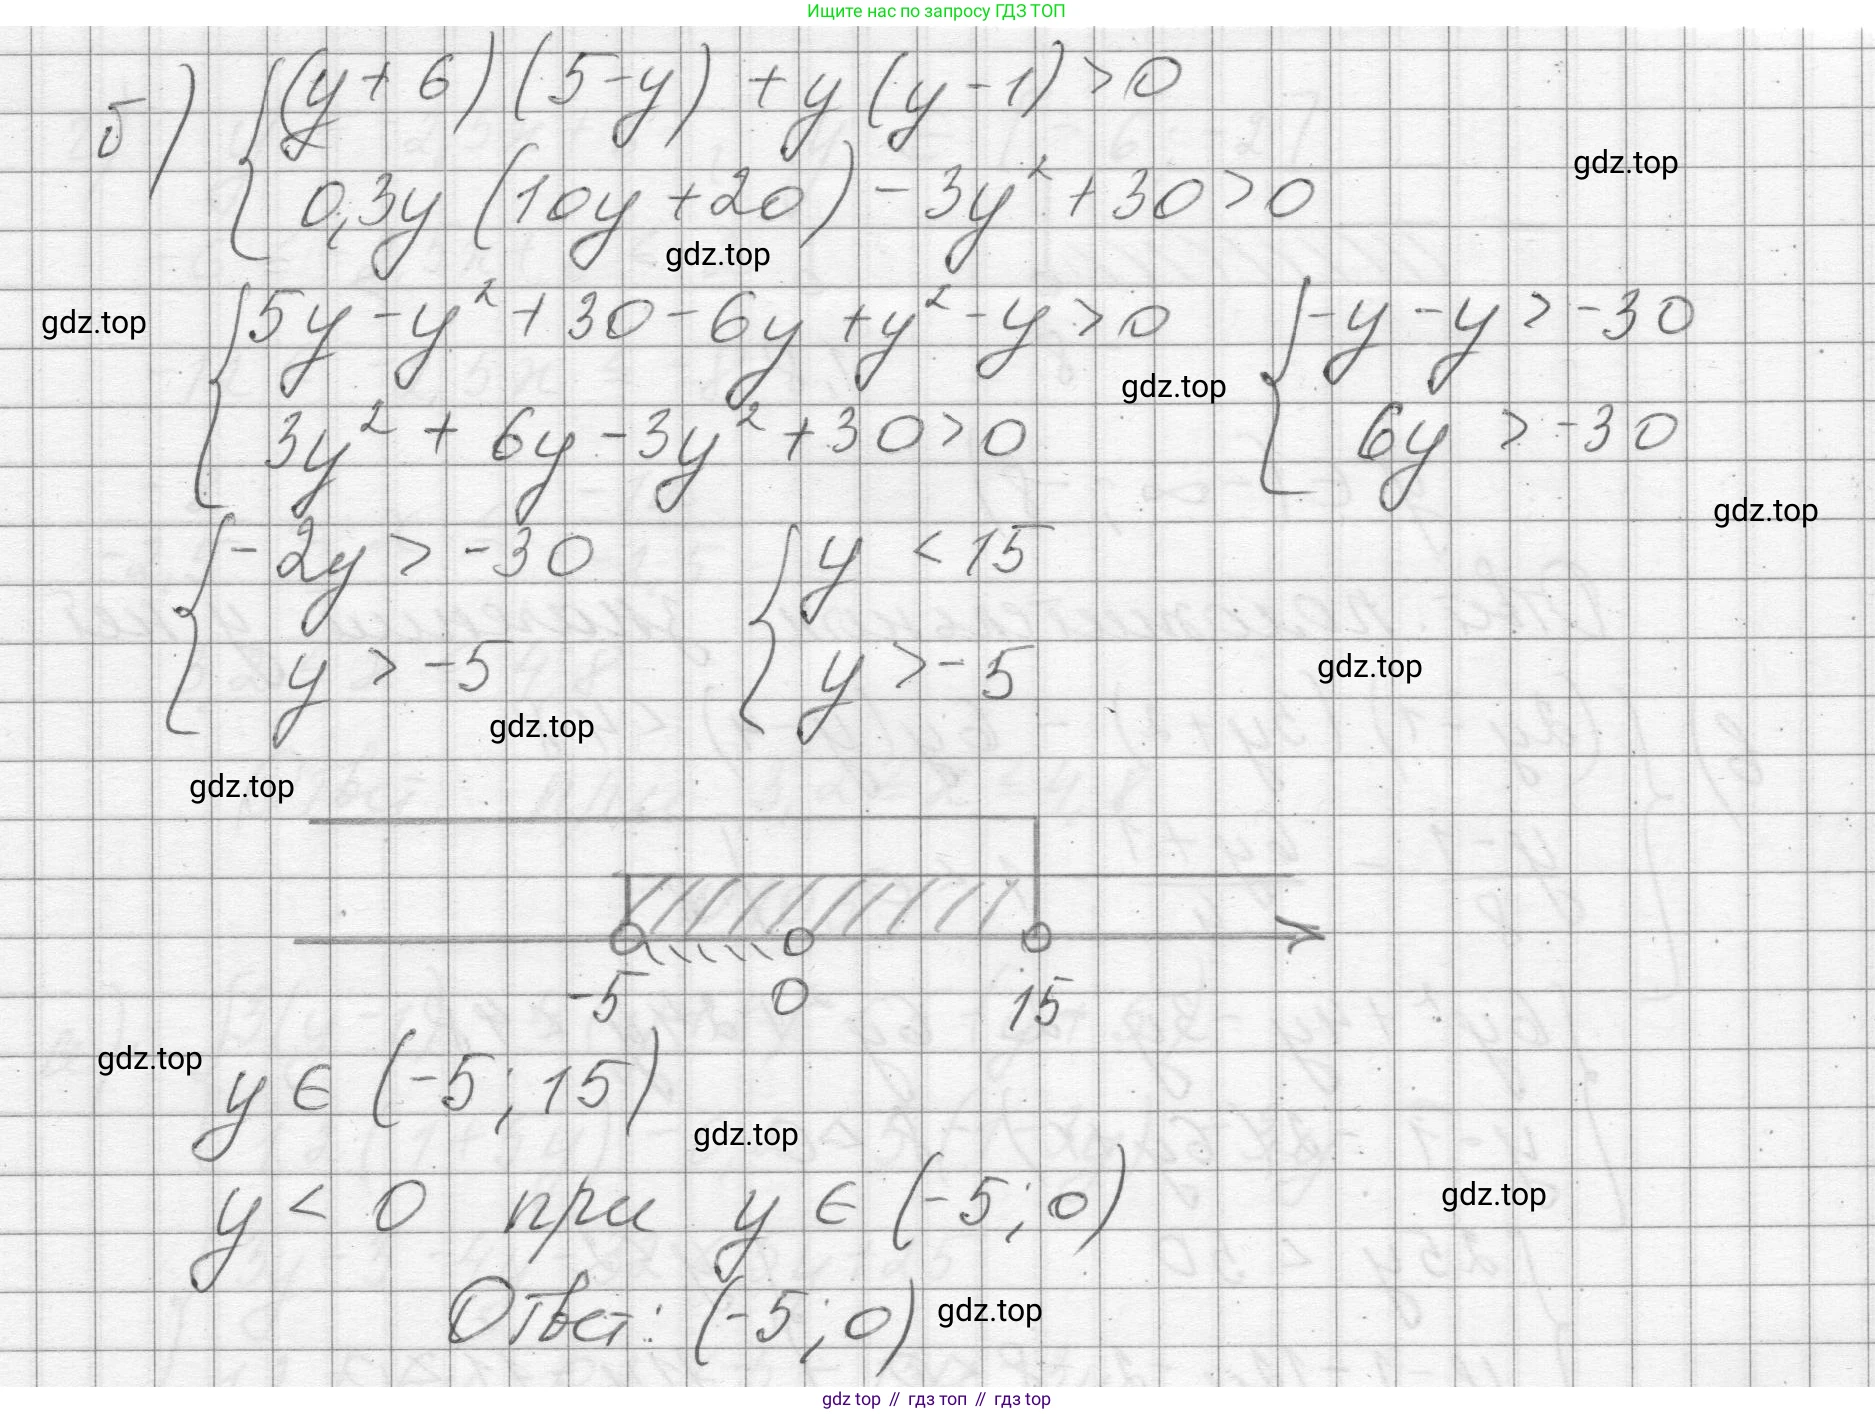 Ищите нас по запросу ГДЗ ТОП
б) { (y+6)(5-y) + y(y-1) > 0
0,3y(10y+20) - 3y² + 30 > 0
gdz.top
gdz.top
{ 5y - y² + 30 - 6y + y² - y > 0 { -y - y > -30
gdz.top
gdz.top
3y² + 6y - 3y² + 30 > 0 6y > -30
gdz.top
{ -2y > -30 { y < 15
y > -5 y > -5
gdz.top
gdz.top
gdz.top
-5 0 15
gdz.top
y ∈ (-5; 15)
gdz.top
y < 0 при y ∈ (-5; 0)
gdz.top
Ответ: (-5; 0)
gdz.top
gdz top // гдз топ // гдз top